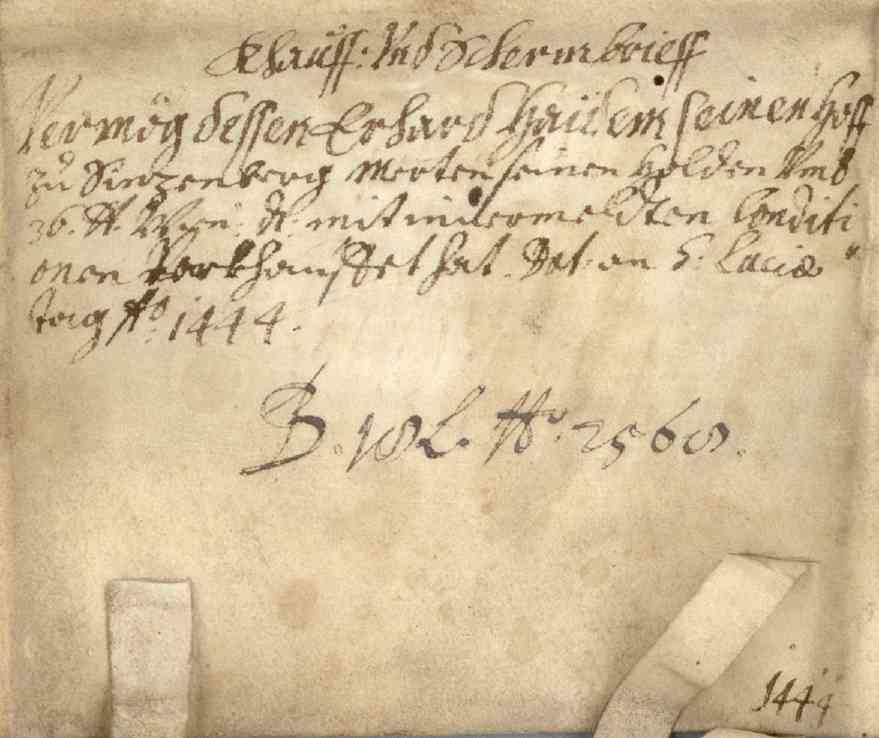 Khauff: Und Schermbrieff
Vermög dessen Erhard Haidem seinen Hoff
zu Sinzenberg Merten seinen Holden Umb
36. ℔. Wien: ₰. mit innvermeldten Conditi
onen Verkhauffet hat. Dat: an S: Luciæ
tag Aº. 1444.
B. 18 L. Nr. 2568.
1444